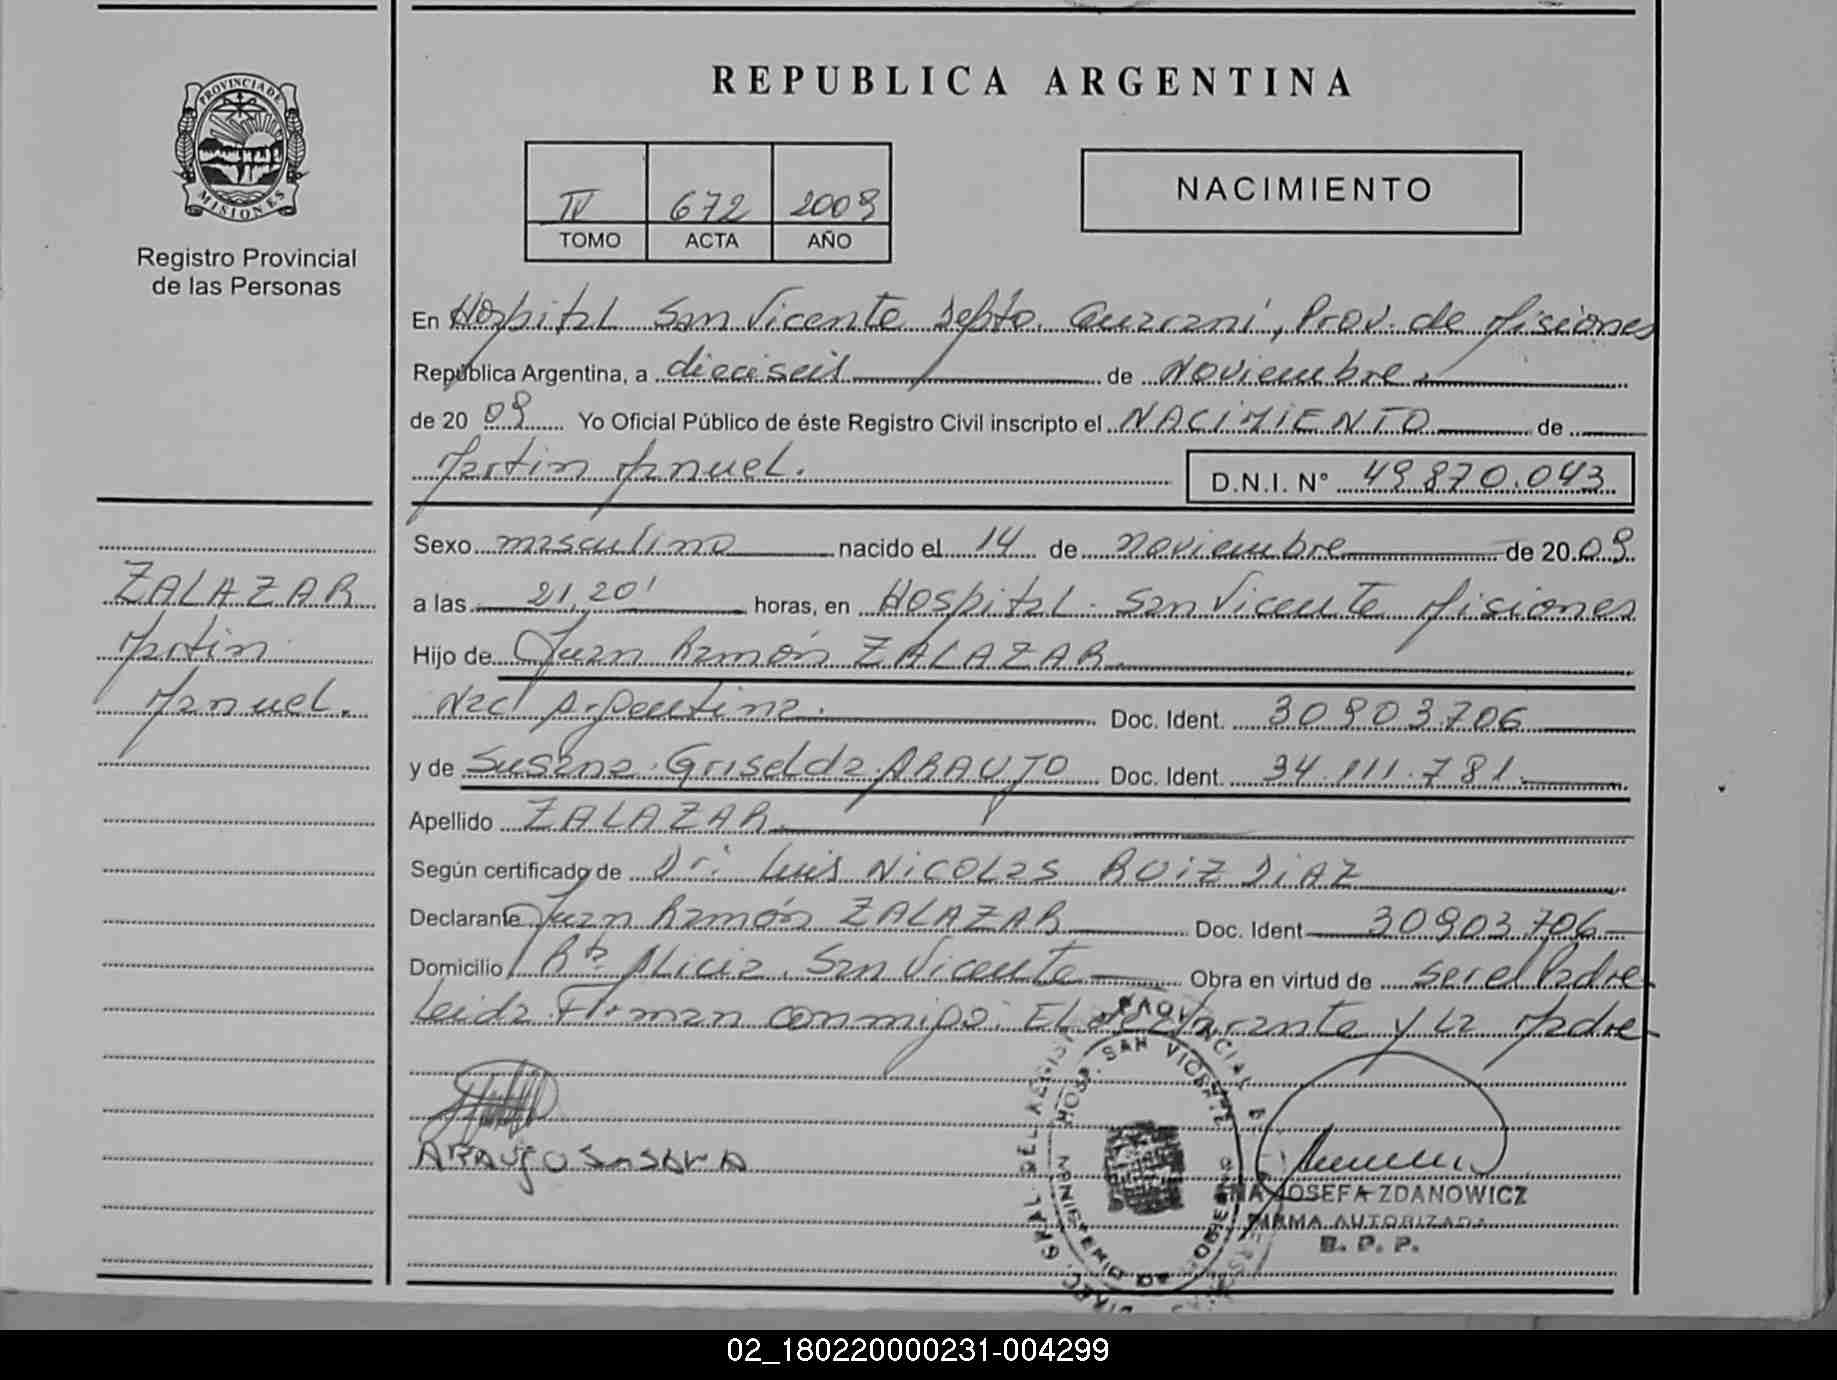 REPUBLICA ARGENTINA
PROVINCIA DE
MISIONES
Registro Provincial
de las Personas
IV 672 2009
TOMO ACTA AÑO
NACIMIENTO
En Hospital San Vicente Depto. Guarani, Prov. de Misiones
República Argentina, a dieciseis de Noviembre
de 20 09 Yo Oficial Público de éste Registro Civil inscripto el NACIMIENTO de
Martin Manuel.
D.N.I. N° 49.870.043
Sexo masculino nacido el 14 de Noviembre de 20 09
ZALAZAR
Martin
Manuel.
a las 21,20' horas, en Hospital San Vicente Misiones
Hijo de Juan Ramón ZALAZAR
Nac Argentina. Doc. Ident. 30903.706
y de Susana Griselda ARAUJO Doc. Ident. 34.111.781
Apellido ZALAZAR
Según certificado de Dr. Luis Nicolas RUIZ DIAZ
Declarante Juan Ramón ZALAZAR Doc. Ident 30903.706
Domicilio Alicia, San Vicente Obra en virtud de ser el Padre
Leida Firman conmigo: El declarante y La Madre
ARAUJO SUSANA
HOSP. SAN VICENTE
ANA JOSEFA ZDANOWICZ
FIRMA AUTORIZADA
R. P. P.
02_180220000231-004299